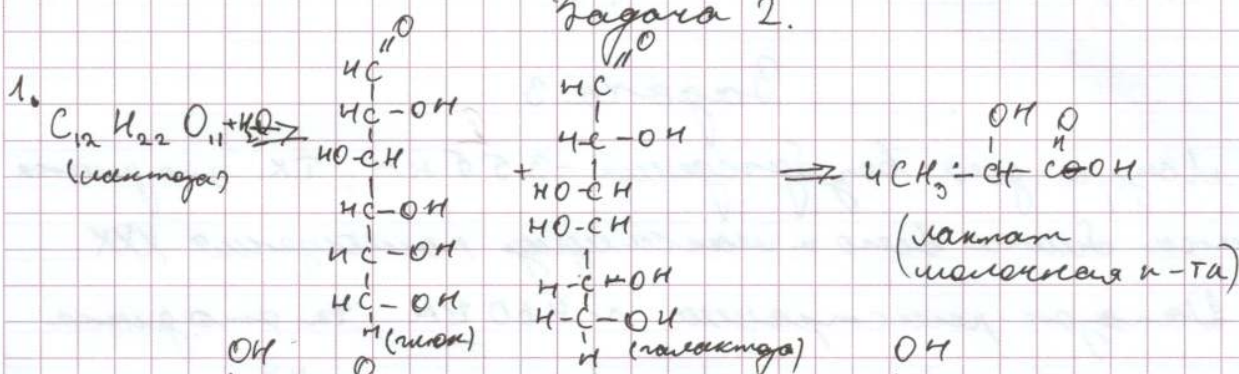 Задача 2.
1.
C₁₂H₂₂O₁₁ + H₂O ⇒
(лактоза)
HC=O
HC-OH
HO-CH
HC-OH
HC-OH
HC-OH
H (глюк)
+
HC=O
H-C-OH
HO-CH
HO-CH
H-C-OH
H-C-OH
H (галактоза)
⇒ 4CH₃-CH-COOH
OH O
(лактат
молочная к-та)
OH
O
OH